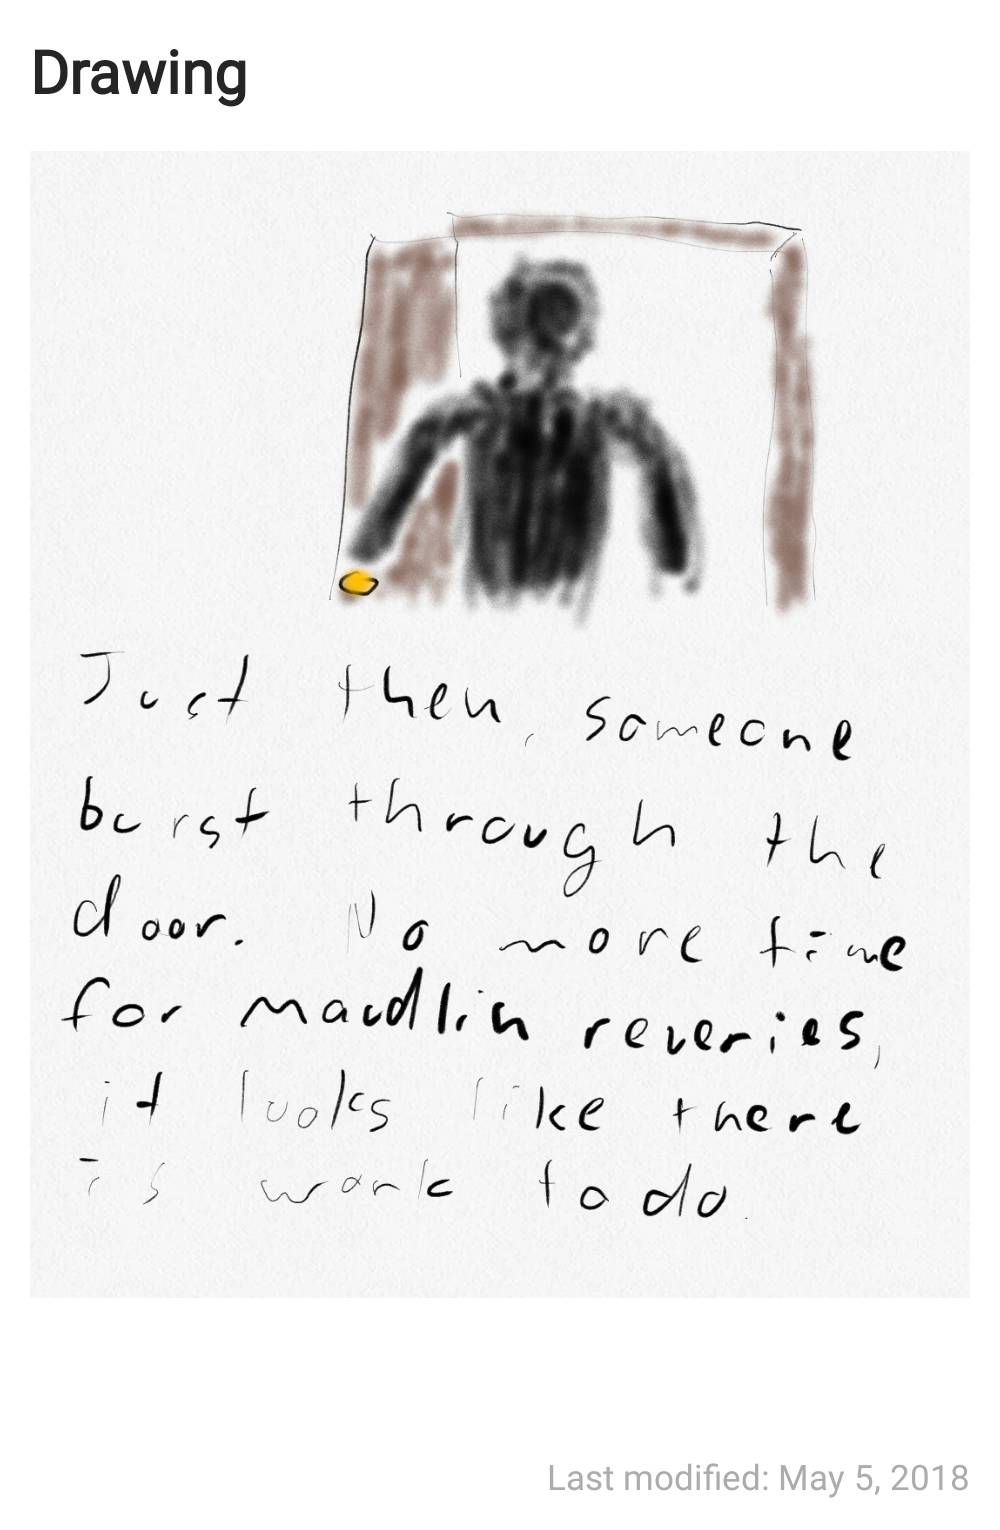 Drawing
Just then, someone
burst through the
door. No more time
for maudlin reveries,
it looks like there
is work to do.
Last modified: May 5, 2018